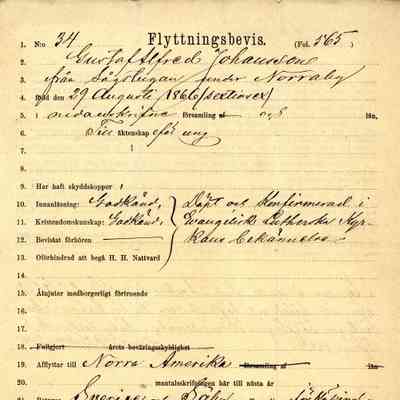 1. N:o 34 Flyttningsbevis. (Fol. 565)
2. Gustaf Alfred Johansson
3. från Sågstugan under Norraby
4. född den 29 Augusti 1866 (sextiosex)
5. i nedanskrifne församling af och län,
6. Till äktenskap för ung
7.
8.
9. Har haft skyddskoppor,
10. Innanläsning: Godkänd, Döpt och Konfirmerad i
11. Kristendomskunskap: Godkänd, Evangelisk Lutherska Kyr-
12. Bevistat förhören kans bekännelse
13. Oförhindrad att begå H. H. Nattvard
14.
15. Åtnjuter medborgerligt förtroende
16.
17.
18. Fullgjort årets beväringsskyldighet
19. Afflyttar till Norra Amerika församling af län
20. mantalsskrifningen här till nästa år
Sverige